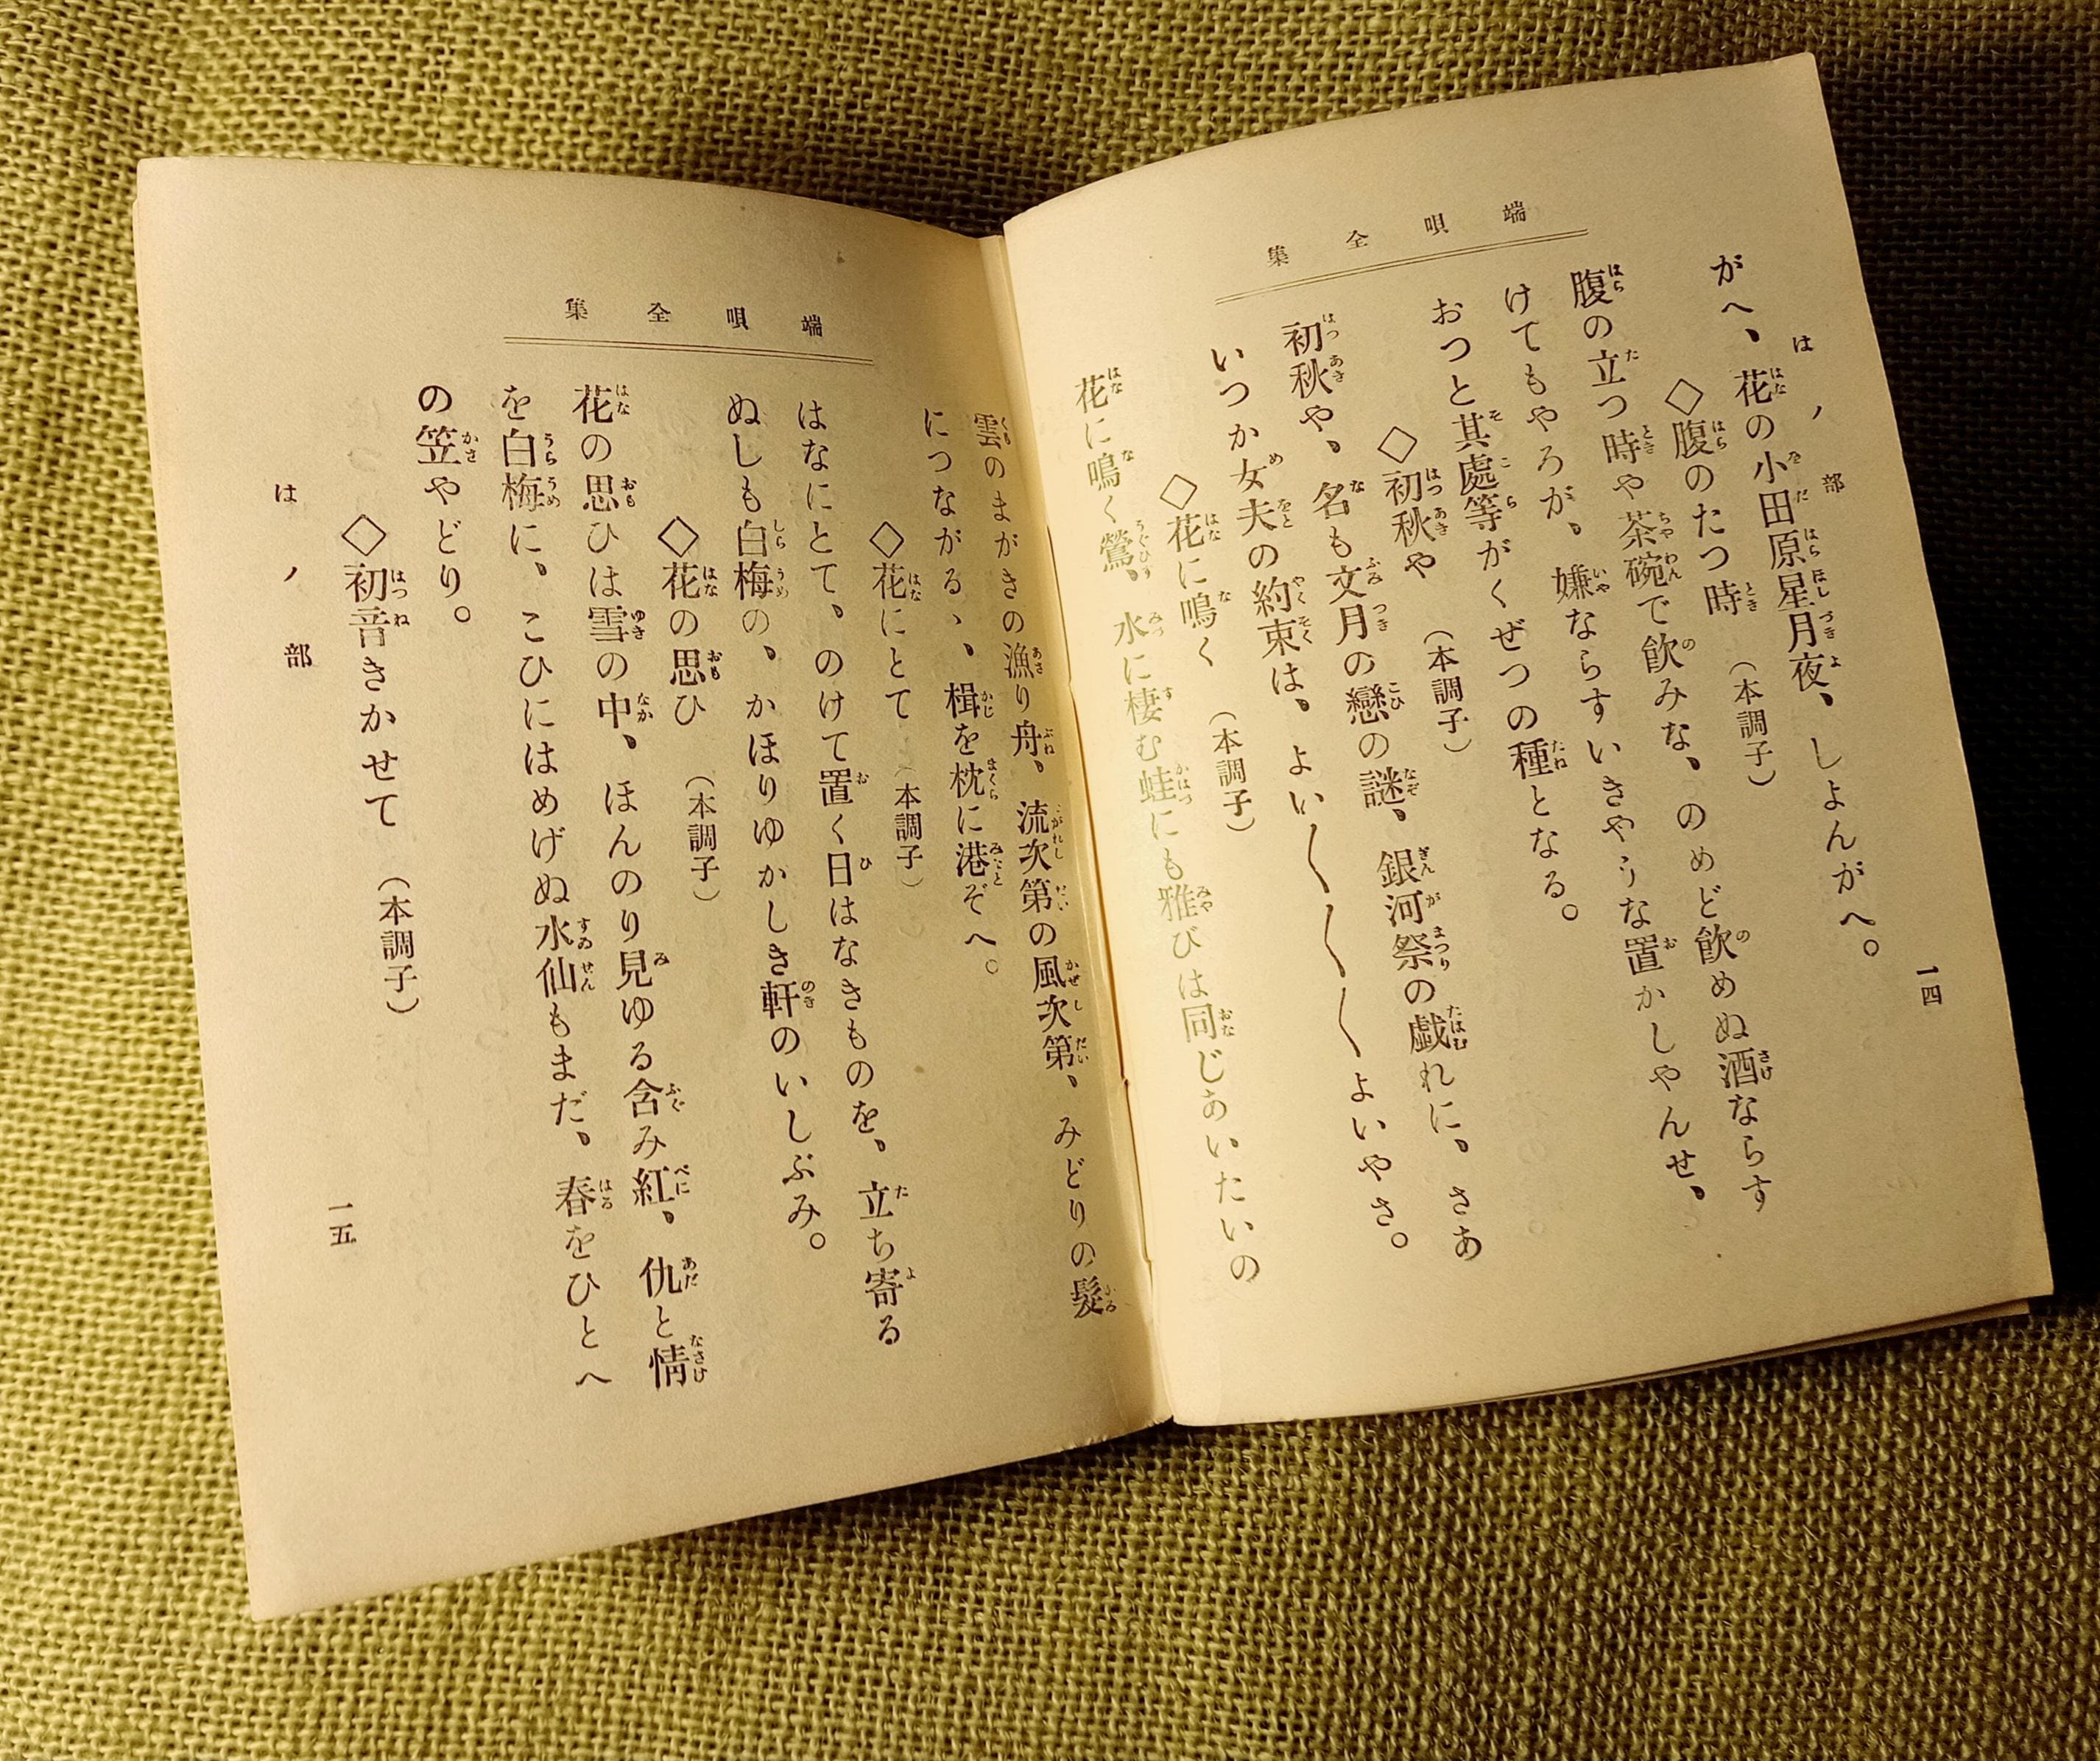 端唄全集
はノ部
がへ、花の小田原星月夜、しよんがへ。
◇腹のたつ時（本調子）
腹の立つ時や茶碗で飲みな、のめど飲めぬ酒ならす
けてもやろが、嫌ならすいきやうな置かしやんせ、
おつと其處等がくぜつの種となる。
◇初秋や（本調子）
初秋や、名も文月の戀の謎、銀河祭の戯れに、さあ
いつか女夫の約束は、よい〱〱〱よいやさ。
◇花に鳴く（本調子）
花に鳴く鶯、水に棲む蛙にも雅びは同じあいたいの
一四
端唄全集
雲のまがきの漁り舟、流次第の風次第、みどりの髮
につながるゝ、楫を枕に港ぞへ。
◇花にとて（本調子）
はなにとて、のけて置く日はなきものを、立ち寄る
ぬしも白梅の、かほりゆかしき軒のいしぶみ。
◇花の思ひ（本調子）
花の思ひは雪の中、ほんのり見ゆる含み紅、仇と情
を白梅に、こひにはめげぬ水仙もまだ、春をひとへ
の笠やどり。
◇初音きかせて（本調子）
はノ部
一五